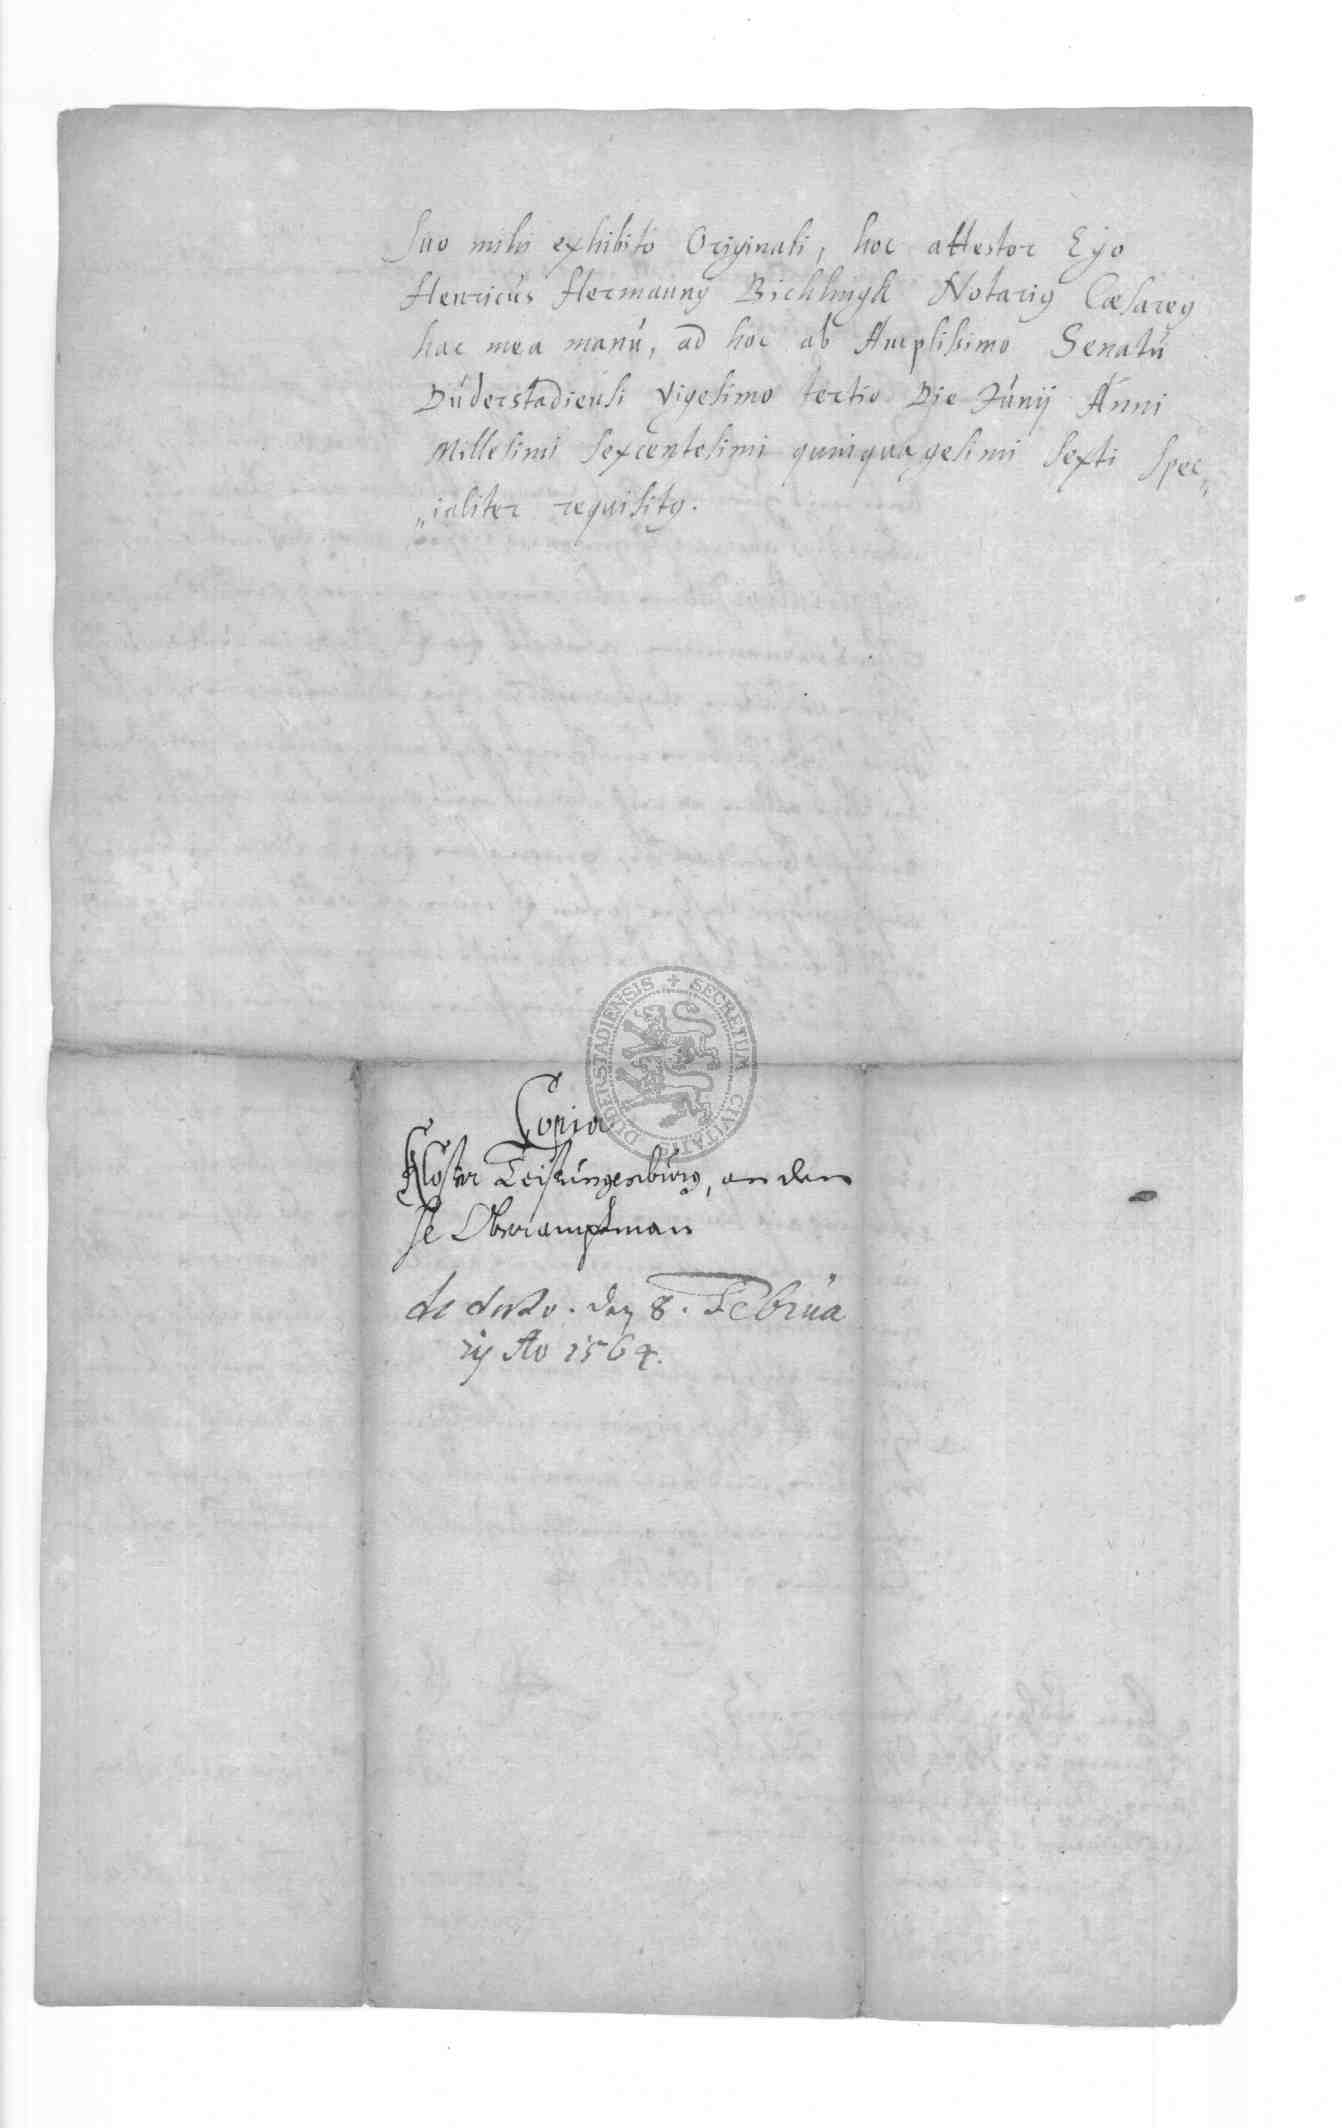 suo mihi exhibito Originali, hoc attestor Ego
Henricus Hermannꝯ Bichlingk Notariꝯ Cæsareꝯ
hac mea manú, ad hoc ab Amplissimo Senatú
Dúderstadiensi vigesimo tertio Die Júnij Anni
Millesimi sexcentesimi quinquagesimi sexti spec„
„ialiter requisitꝯ.
DUDERSTADIENSIS + SECRETUM CIVITATIS
Copia
Kloster Teistúngenbúrg, an den
He Oberamptman
de dato. den 8. Februa
rij Ao 1564.